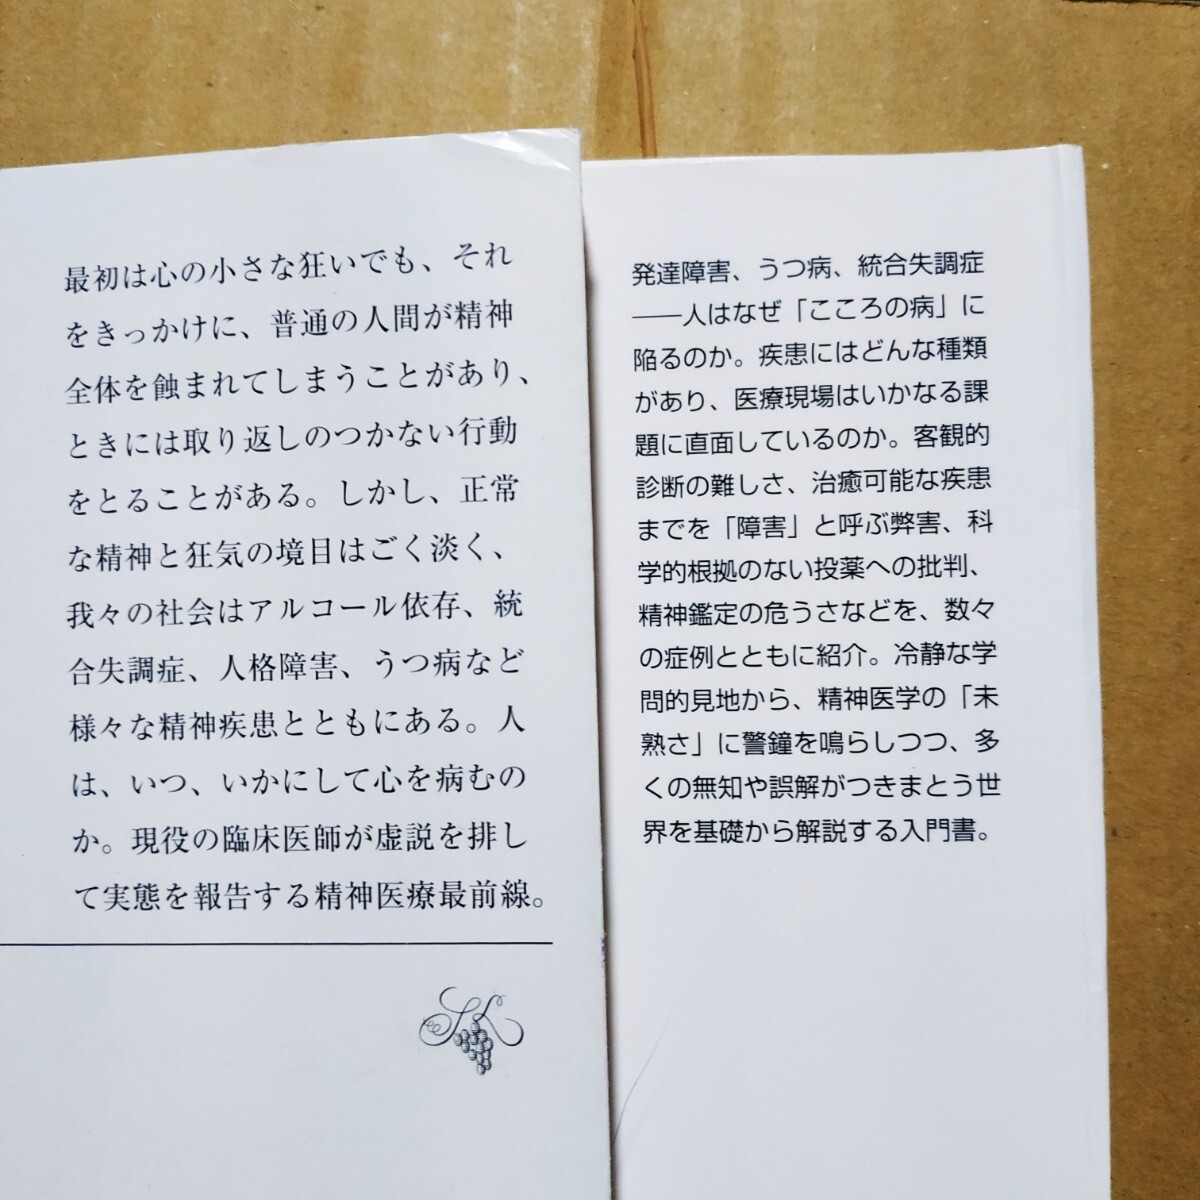 最初は心の小さな狂いでも、それ
をきっかけに、普通の人間が精神
全体を蝕まれてしまうことがあり、
ときには取り返しのつかない行動
をとることがある。しかし、正常
な精神と狂気の境目はごく淡く、
我々の社会はアルコール依存、統
合失調症、人格障害、うつ病など
様々な精神疾患とともにある。人
は、いつ、いかにして心を病むの
か。現役の臨床医師が虚説を排し
て実態を報告する精神医療最前線。
SK
発達障害、うつ病、統合失調症
――人はなぜ「こころの病」に
陥るのか。疾患にはどんな種類
があり、医療現場はいかなる課
題に直面しているのか。客観的
診断の難しさ、治癒可能な疾患
までを「障害」と呼ぶ弊害、科
学的根拠のない投薬への批判、
精神鑑定の危うさなどを、数々
の症例とともに紹介。冷静な学
問的見地から、精神医学の「未
熟さ」に警鐘を鳴らしつつ、多
くの無知や誤解がつきまとう世
界を基礎から解説する入門書。